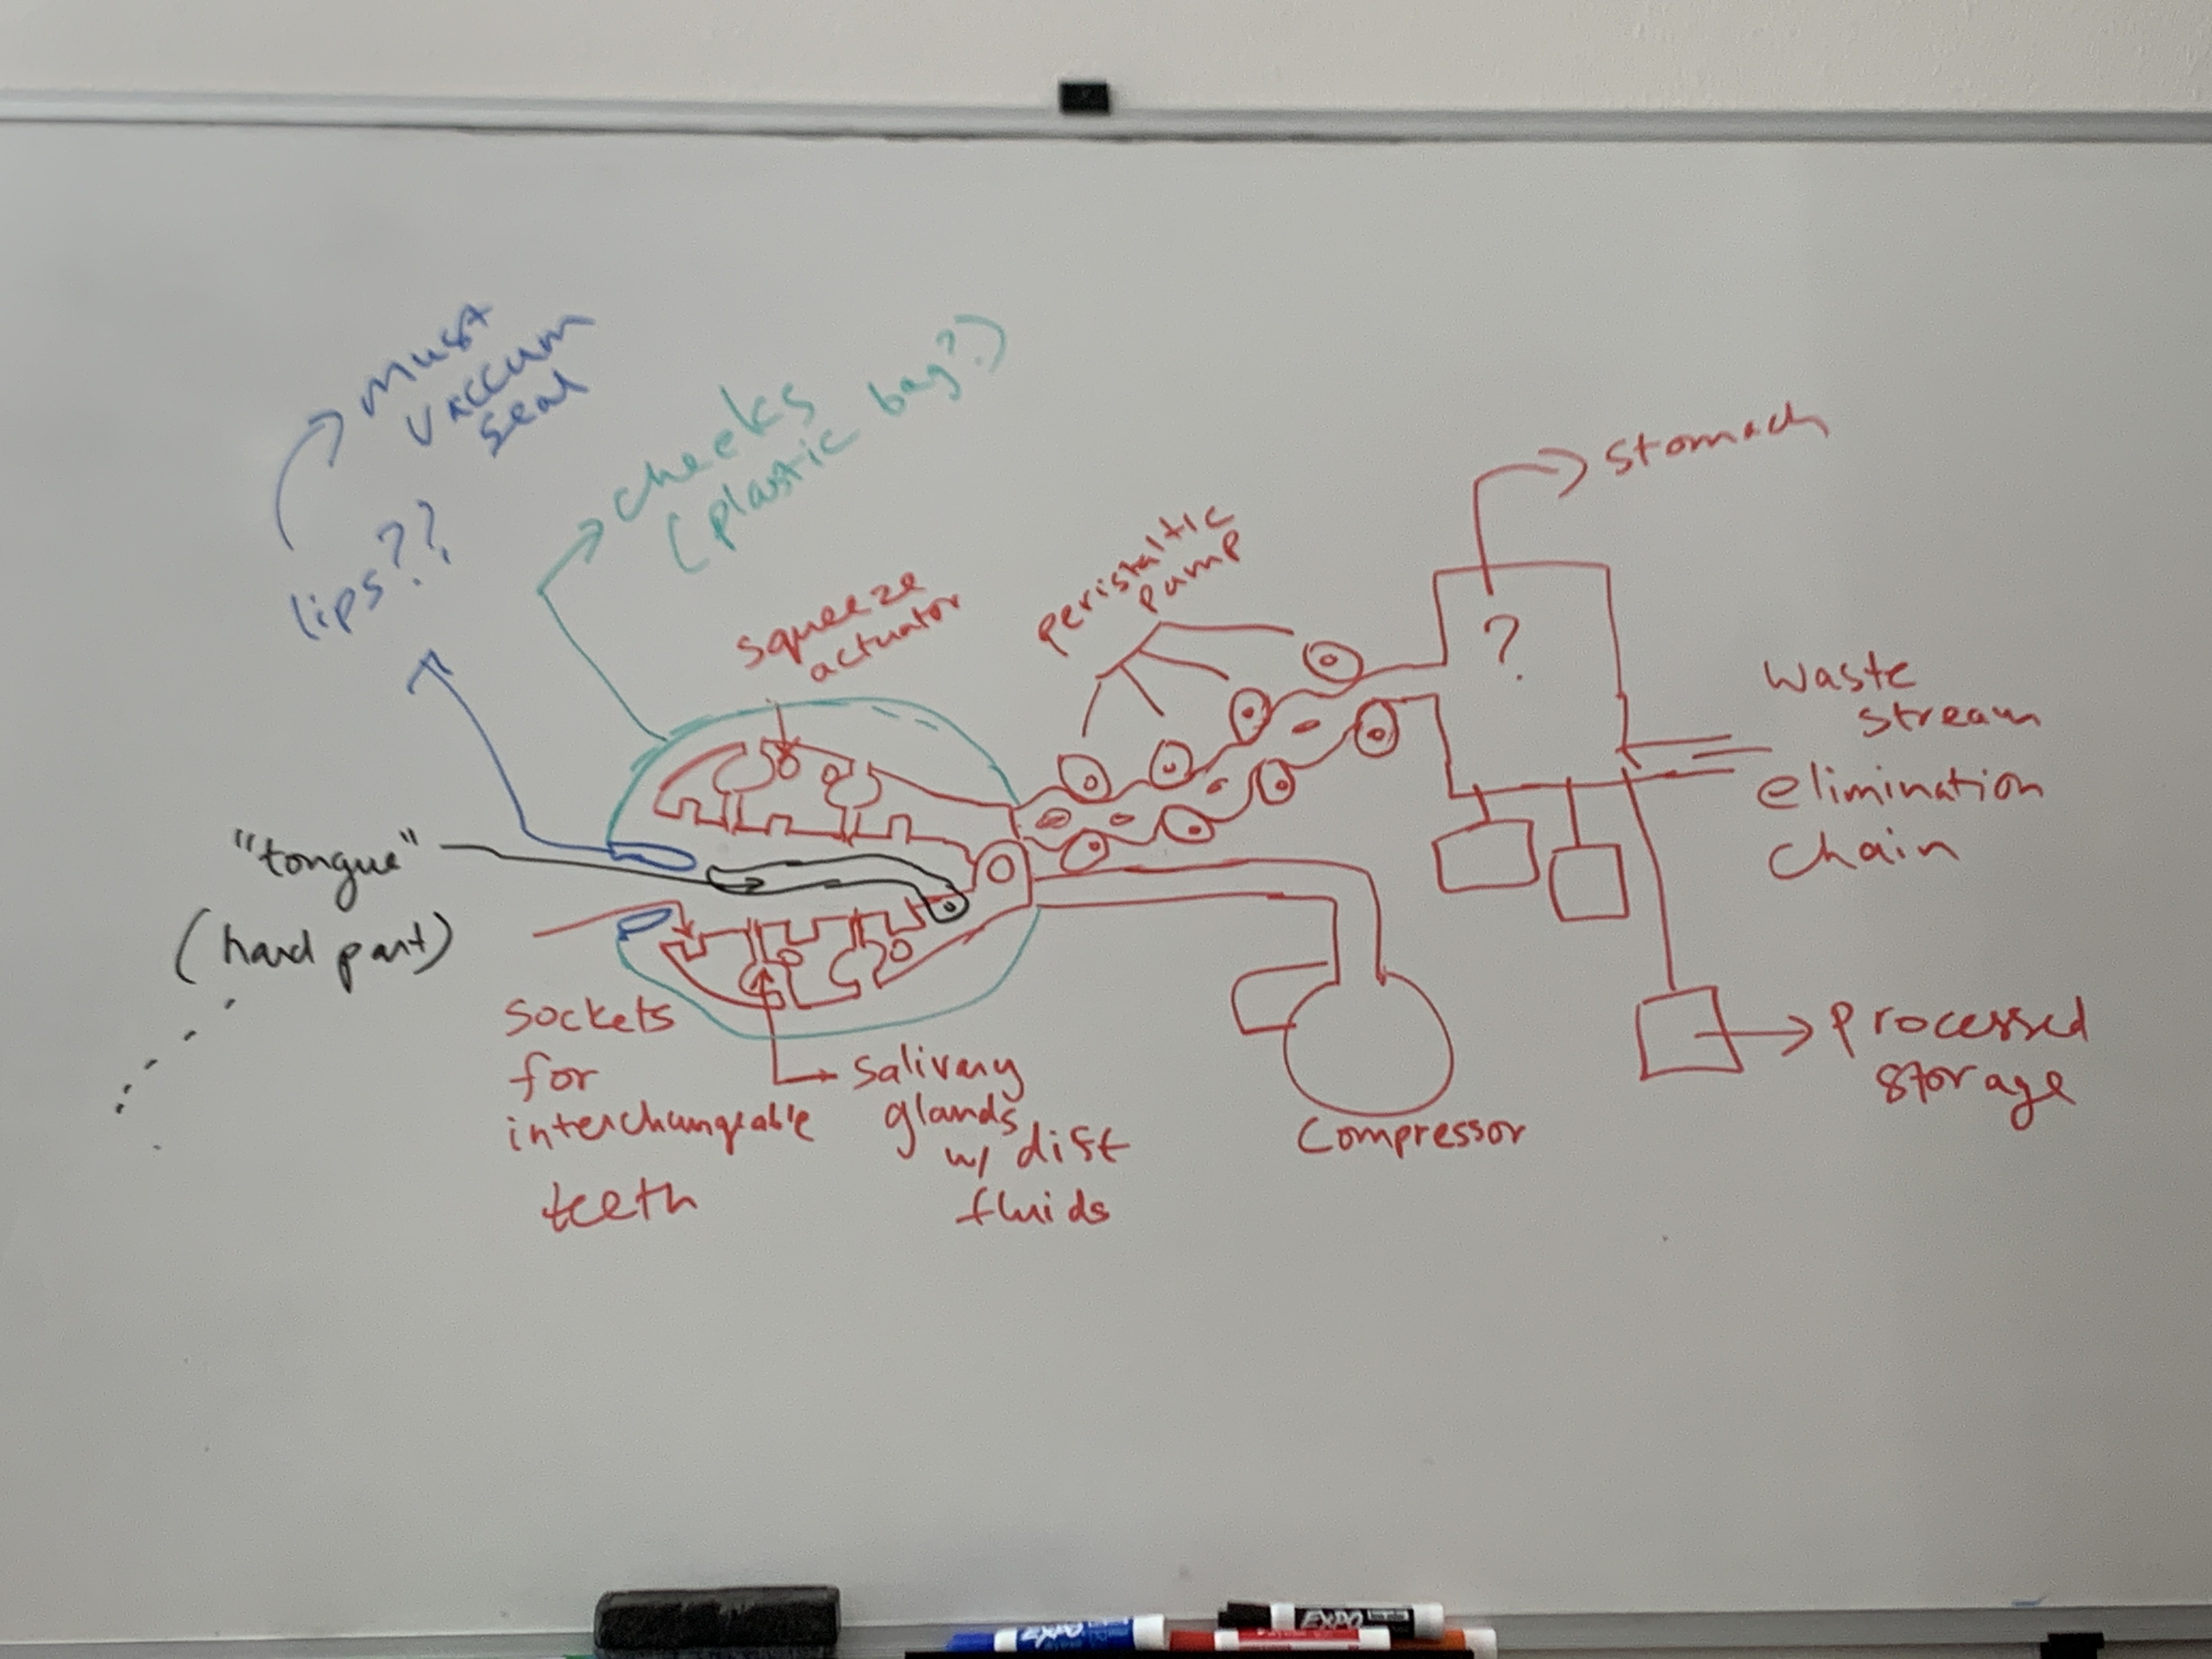 must
vaccum
seal
lips??
cheeks
(plastic bag?)
squeeze
actuator
peristaltic
pump
stomach
?
waste
stream
elimination
chain
"tongue"
(hard part)
sockets
for
interchangeable
teeth
salivary
glands
w/ dist
fluids
compressor
processed
storage
EXPO
EXPO